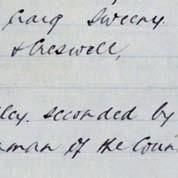 Craig Sweeny.
& Creswell,
ley. seconded by
man of the Coun